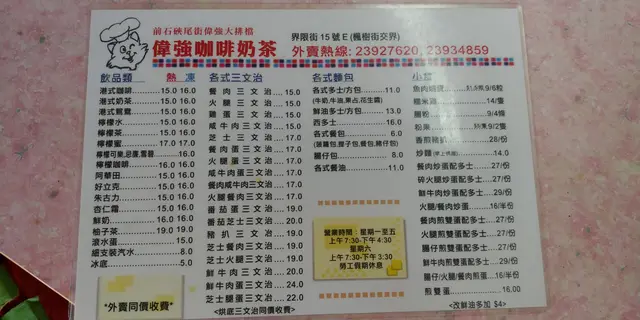 前石硤尾街偉強大排檔
偉強咖啡奶茶
界限街15號E(楓樹街交界)
外賣熱線: 23927620, 23934859
飲品類 熱 凍
港式咖啡 15.0 16.0
港式奶茶 15.0 16.0
港式鴛鴦 15.0 16.0
檸檬水 15.0 16.0
檸檬茶 15.0 16.0
檸檬蜜 17.0 17.0
檸檬可樂,忌廉 16.0
檸檬咖啡 16.0 16.0
阿華田 15.0 16.0
好立克 15.0 16.0
朱古力 15.0 16.0
杏仁霜 15.0 16.0
鮮奶 16.0 16.0
柚子茶 19.0 19.0
滾水蛋 15.0
細支裝汽水 8.0
冰底 5.0
*外賣同價收費*
各式三文治
餐肉三文治 15.0
火腿三文治 15.0
雞蛋三文治 15.0
咸牛肉三文治 15.0
芝士三文治 17.0
餐肉蛋三文治 17.0
火腿蛋三文治 17.0
咸牛肉蛋三文治 17.0
餐肉咸牛肉三文治 17.0
火腿餐肉三文治 17.0
番茄蛋三文治 19.0
番茄芝士三文治 20.0
豬扒三文治 19.0
芝士餐肉三文治 19.0
芝士火腿三文治 19.0
鮮牛肉三文治 20.0
鮮牛肉蛋三文治 24.0
芝士腿蛋三文治 22.0
<烘底三文治同價收費>
各式麵包
各式多士/方包 11.0
(牛奶,牛油,果占,花生醬)
鮮油多士/方包 13.0
西多士 16.0
各式餐包 6.0
(菠蘿包,提子包,餐包,豬仔包)
腸仔包 8.0
各式餐油 11.0
營業時間：星期一至五
上午7:30-下午4:30
星期六
上午7:30-下午3:30
勞工假期休息
小食
魚肉燒賣 9/6粒
糯米雞 14/隻
腸粉 9/4條
松糕 9/2隻
香煎豬扒 28/份
炒麵 14.0
餐肉炒蛋配多士 27/份
碎火腿炒蛋配多士 27/份
鮮牛肉炒蛋配多士 29/份
火腿/餐肉炒蛋 16/半份
餐肉煎雙蛋配多士 27/份
火腿煎雙蛋配多士 27/份
腸仔煎雙蛋配多士 27/份
鮮牛肉煎蛋配多士 29/份
腸仔/火腿/餐肉煎蛋 16/半份
煎雙蛋 16.00
<改鮮油多加 $4>